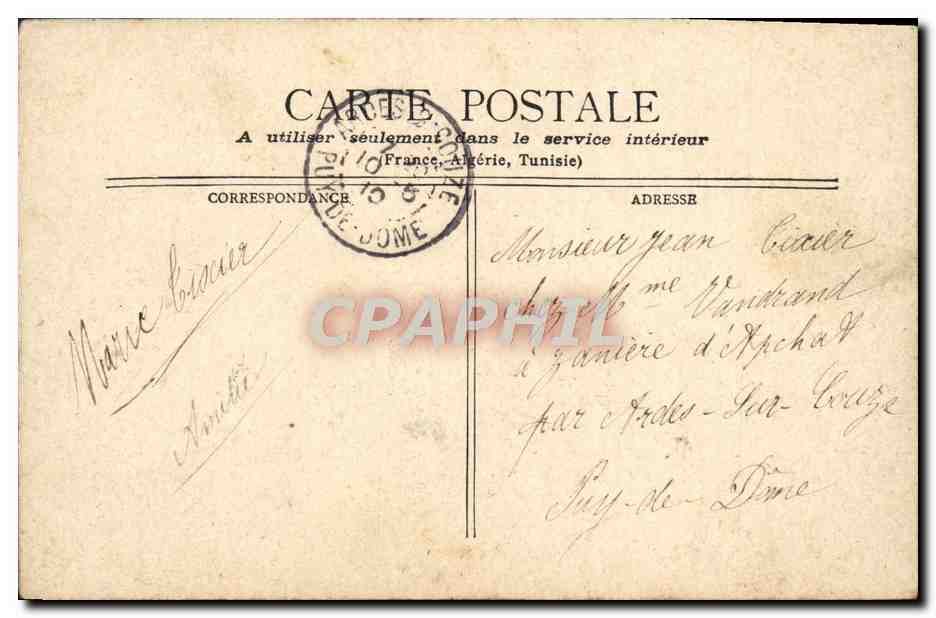 CARTE POSTALE
A utiliser seulement dans le service intérieur
(France, Algérie, Tunisie)
CORRESPONDANCE
ADRESSE
ARDES-S-COUZE
10
10
PUY-DE-DOME
Marie Tixier
Amitié
Monsieur Jean Tixier
chez Mme Vandrand
à Zanière d'Apchat
par Ardes-Sur-Couze
Puy-de-Dôme
CPAPHIL